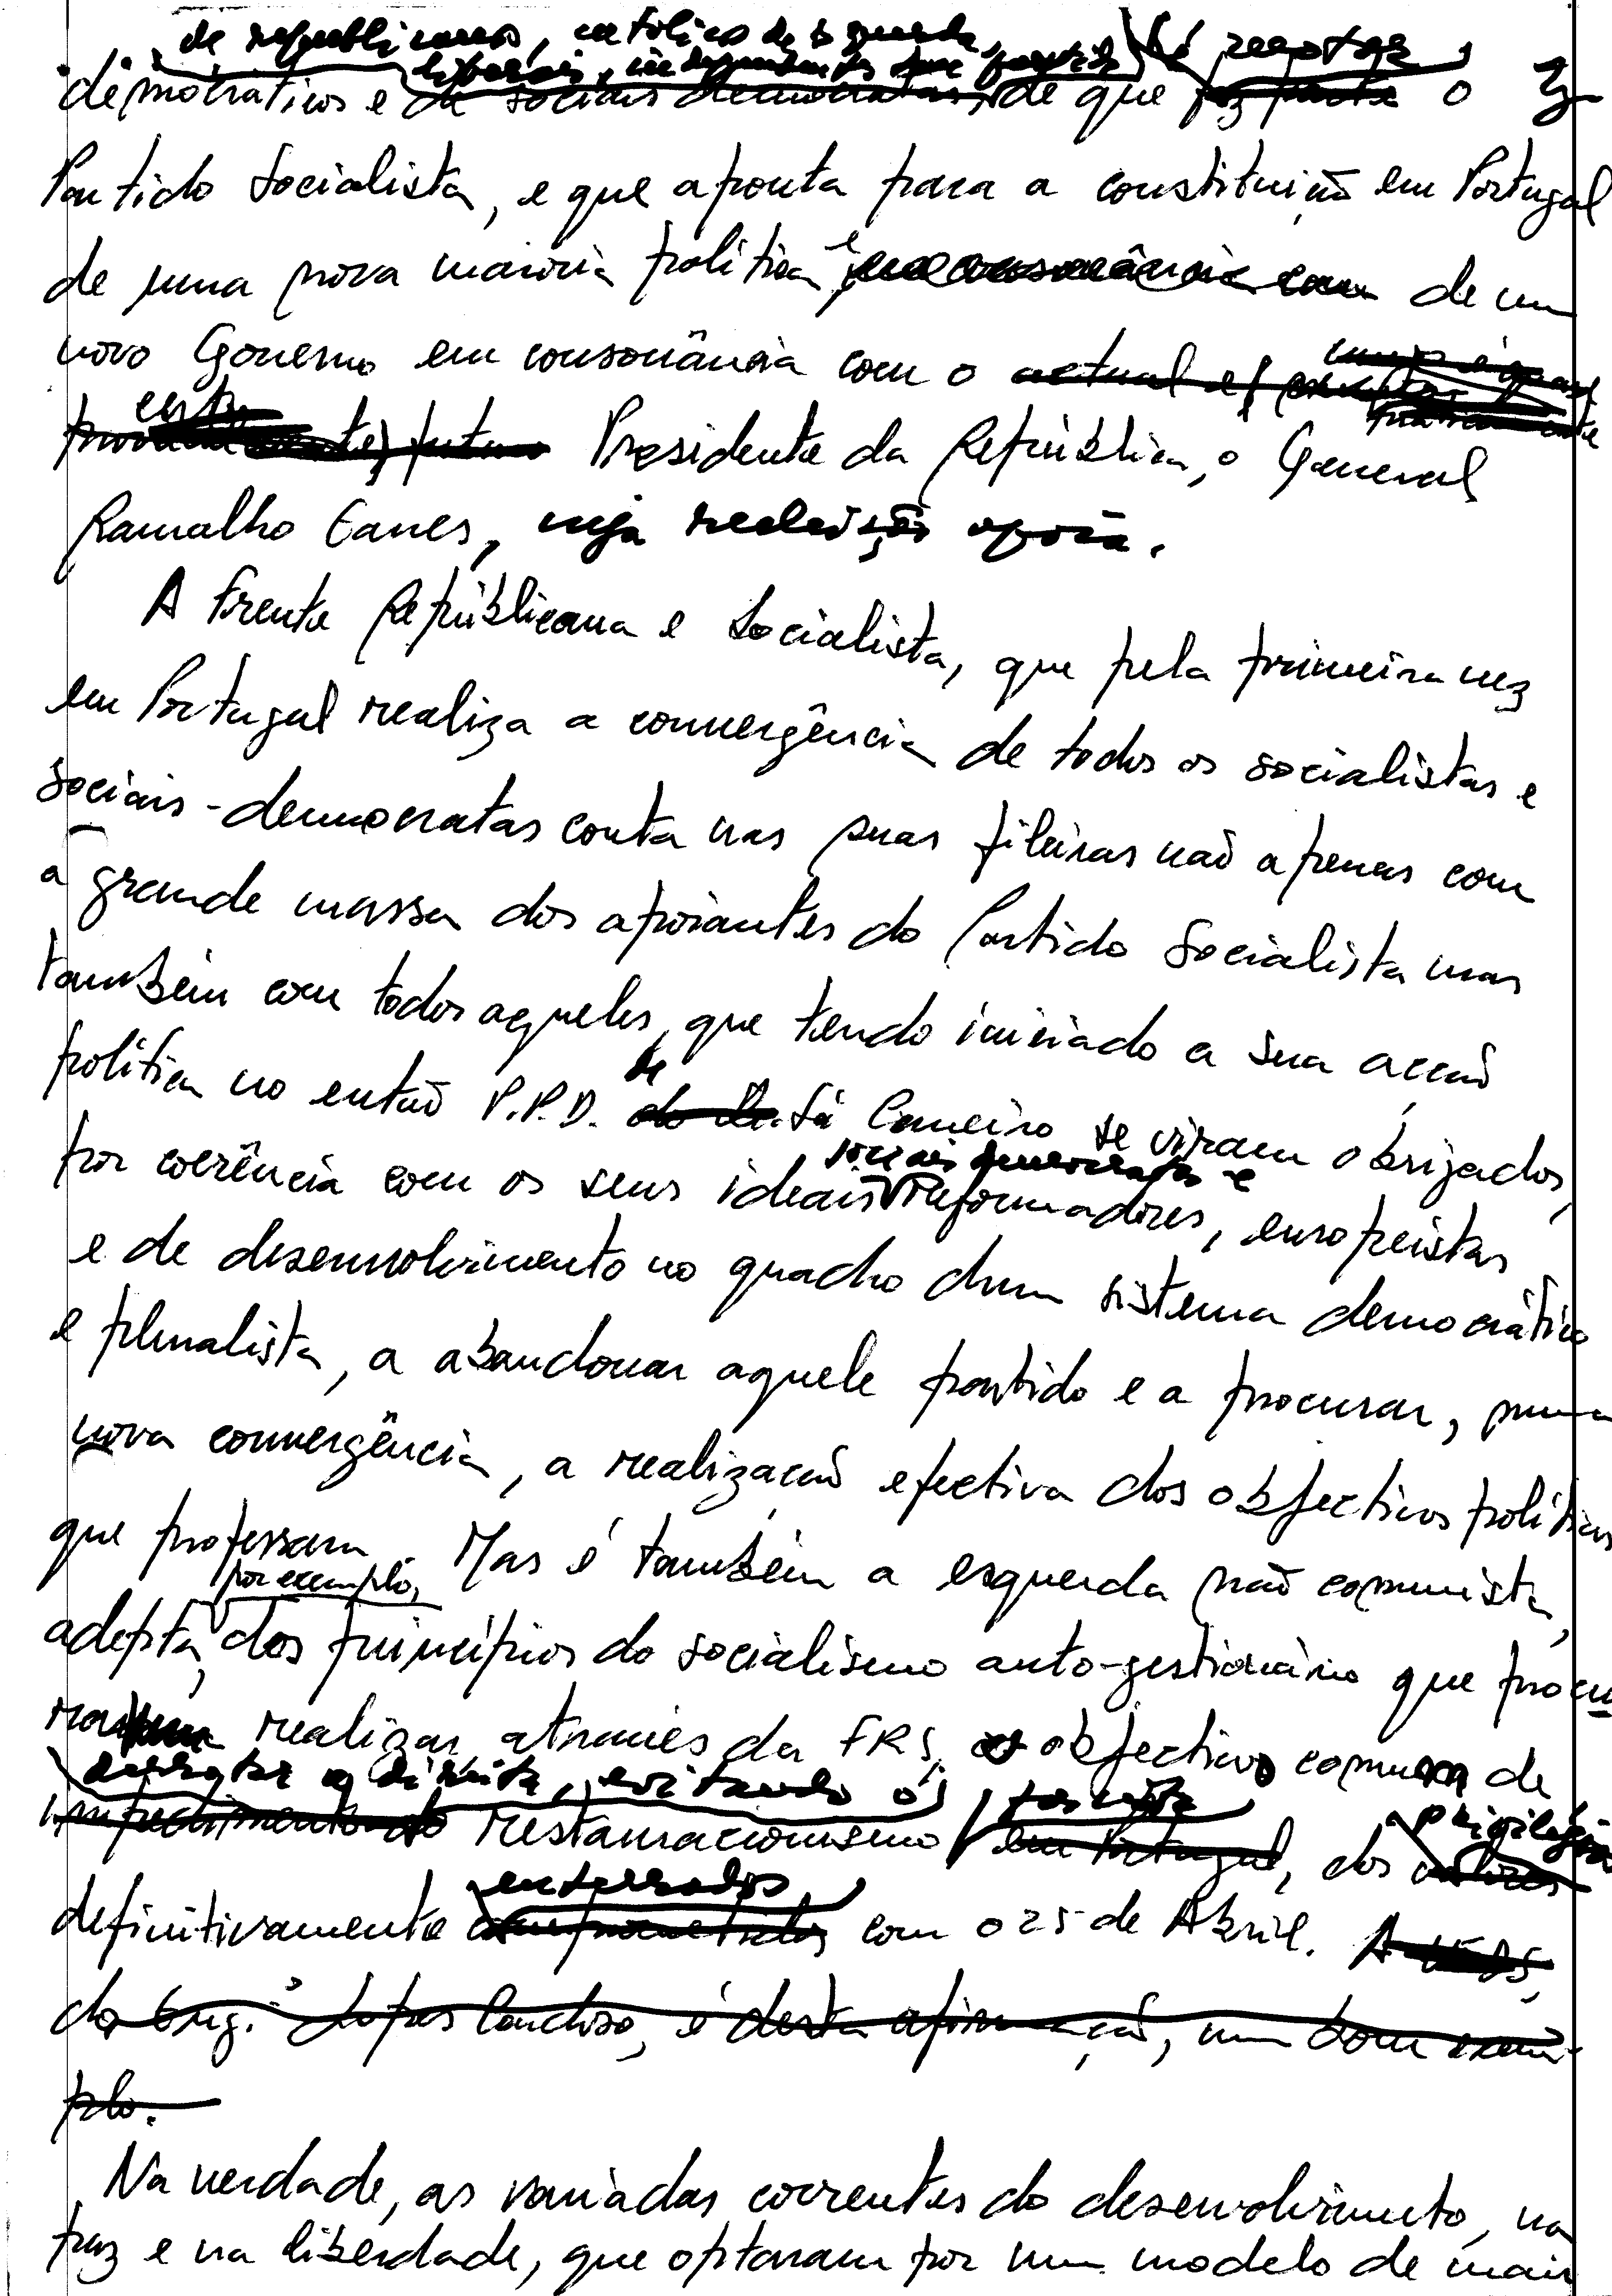 de republicanos, católicos de esquerda,
liberais, independentes sem partido é receptor,
democráticos e de sociais democratas, de que faz parte o 3
Partido Socialista, e que aponta para a constituição em Portugal
de uma nova maioria política e em consonância com de um
novo Governo em consonância com o actual e
futuro Presidente da República, o General
Ramalho Eanes, cuja reeleição apoia.
A Frente Repúblicana e Socialista, que pela primeira vez
em Portugal realiza a convergência de todos os socialistas e
sociais-democratas conta nas suas fileiras não apenas com
a grande massa dos apoiantes do Partido Socialista mas
também com todos aqueles, que tendo iniciado a sua acção
de
política no então P.P.D. do Dr. Sá Carneiro se viram obrigados,
sociais democratas e
por coerência com os seus ideais reformadores, europeistas
e de desenvolvimento no quadro dum sistema democrático
e pluralista, a abandonar aquele partido e a procurar, numa
nova convergência, a realização efectiva dos objectivos políticos
que professam. Mas é também a esquerda não comunista,
por exemplo,
adepta, dos princípios do socialismo auto-gestionário que procu
ra realizar através da FRS, o objectivo comum de
derrotar a direita, evitando o fascista
impedimento do restauracionismo em Portugal, dos valores privilégios
enterrados
definitivamente comprometidos com o 25 de Abril. A UEDS,
do Eng.º Lopes Cardoso, é desta afirmação, um bom exem-
plo.
Na verdade, as variadas correntes do desenvolvimento, na
paz e na liberdade, que optaram por um modelo de mais